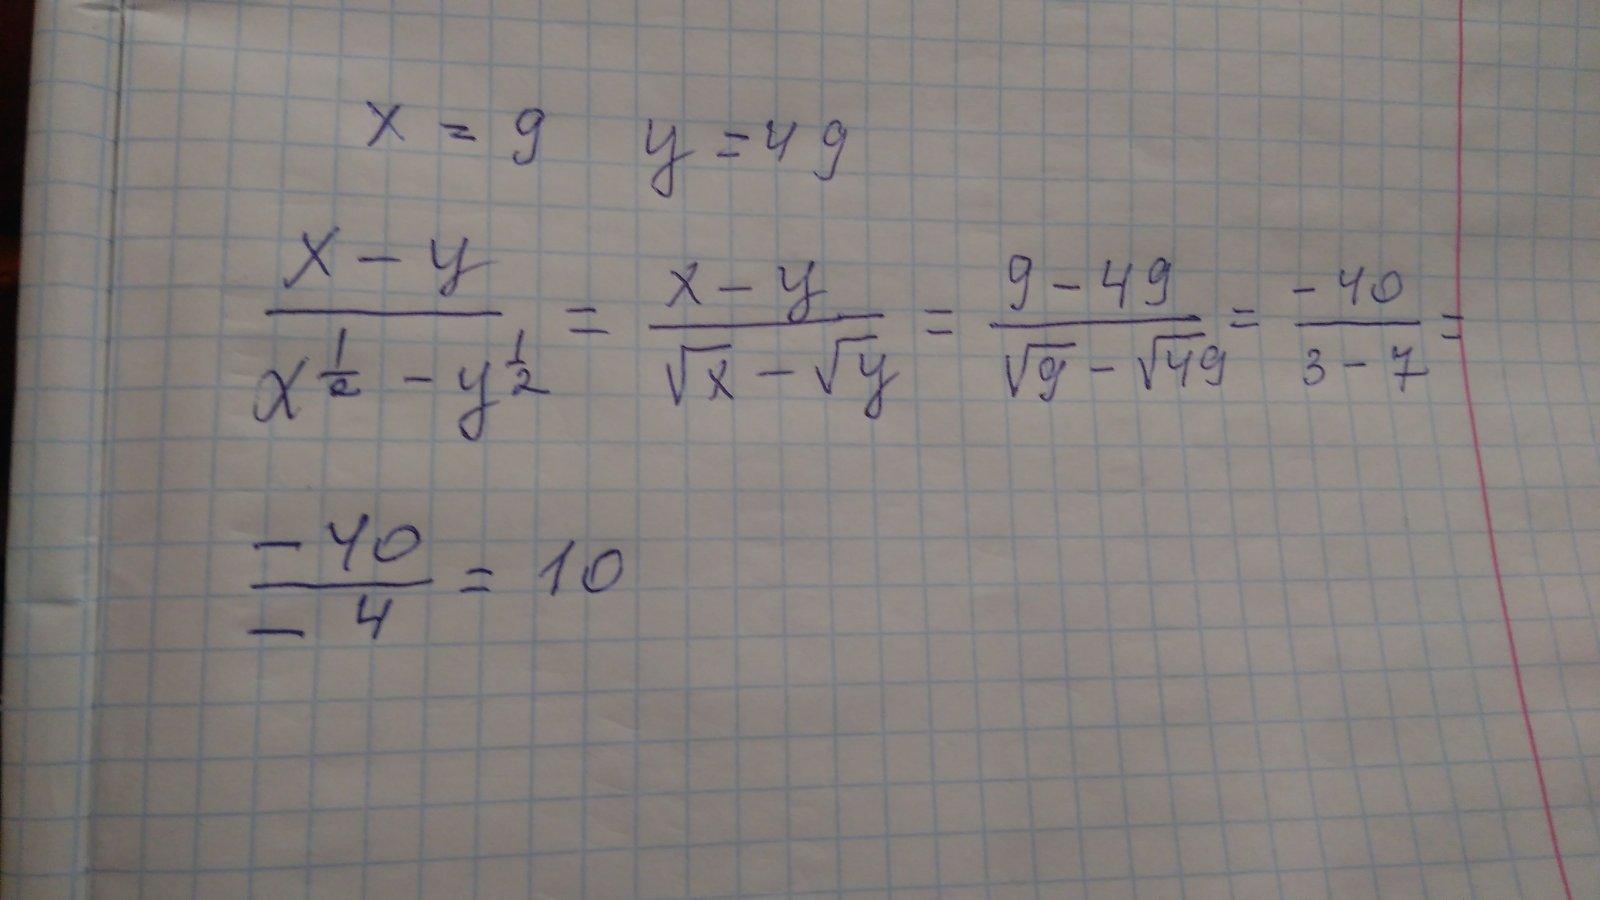 x = 9 y = 49
\frac{x - y}{x^{\frac{1}{2}} - y^{\frac{1}{2}}} = \frac{x - y}{\sqrt{x} - \sqrt{y}} = \frac{9 - 49}{\sqrt{9} - \sqrt{49}} = \frac{-40}{3 - 7} =
\frac{-40}{-4} = 10